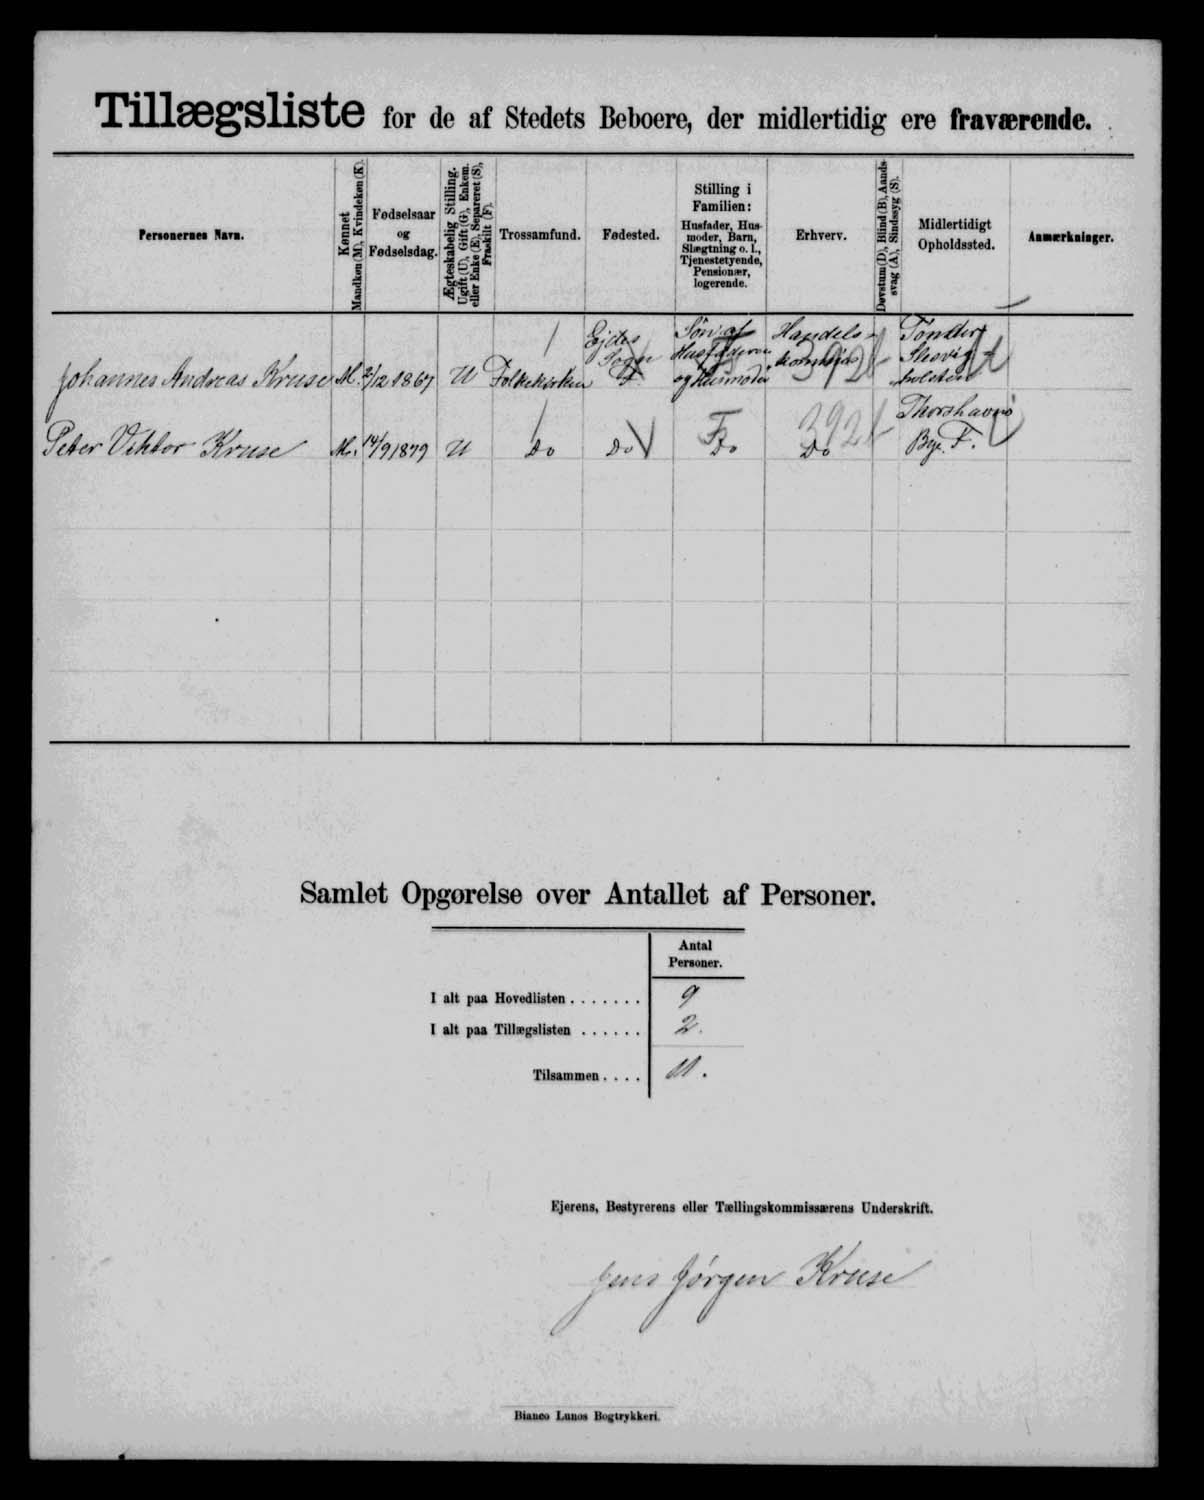 Tillægsliste for de af Stedets Beboere, der midlertidig ere fraværende.
Personernes Navn.
Kønnet
Mandkøn (M), Kvindekøn (K).
Fødselsaar
og
Fødselsdag.
Ægteskabelig Stilling.
Ugift (U), Gift (G), Enkem.
eller Enke (E), Separeret (S),
Fraskilt (F).
Trossamfund.
Fødested.
Stilling i
Familien:
Husfader, Hus-
moder, Barn,
Slægtning o. l.,
Tjenestetyende,
Pensionær,
logerende.
Erhverv.
Døvstum (D), Blind (B), Aands-
svag (A), Sindssyg (S).
Midlertidigt
Opholdssted.
Anmærkninger.
Johannes Andreas Kruse M. 2/12 1867 U Folkekirken
Ejdes
Sogn
F
Søn af
Husfaderen
og Husmoder
Handels-
392
Tønder
Slesvig
holsten
Peter Viktor Kruse M. 14/9 1879 U Do Do F Do 392 Do
Thorshavns
By. F.
Samlet Opgørelse over Antallet af Personer.
Antal
Personer.
I alt paa Hovedlisten . . . . . . . 9
I alt paa Tillægslisten . . . . . . 2.
Tilsammen . . . . 11.
Ejerens, Bestyrerens eller Tællingskommissærens Underskrift.
Jens Jørgen Kruse
Bianco Lunos Bogtrykkeri.